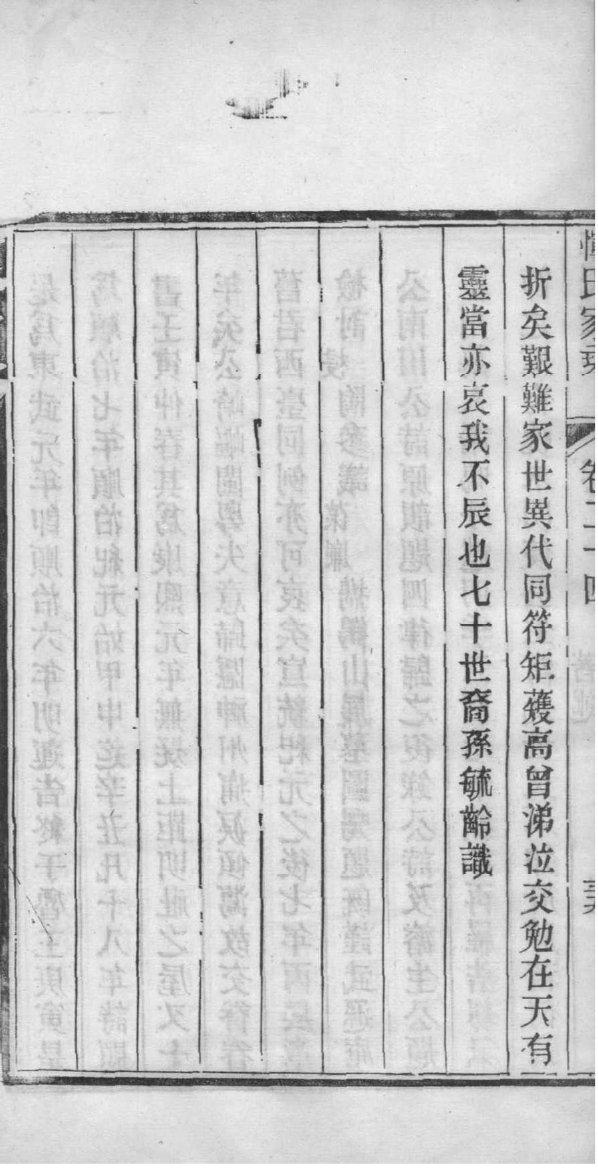 惲氏家乘
卷二十四
折矣艱難家世異代同符矩蒦高曾涕泣交勉在天有
靈當亦哀我不辰也七十世裔孫毓齡識